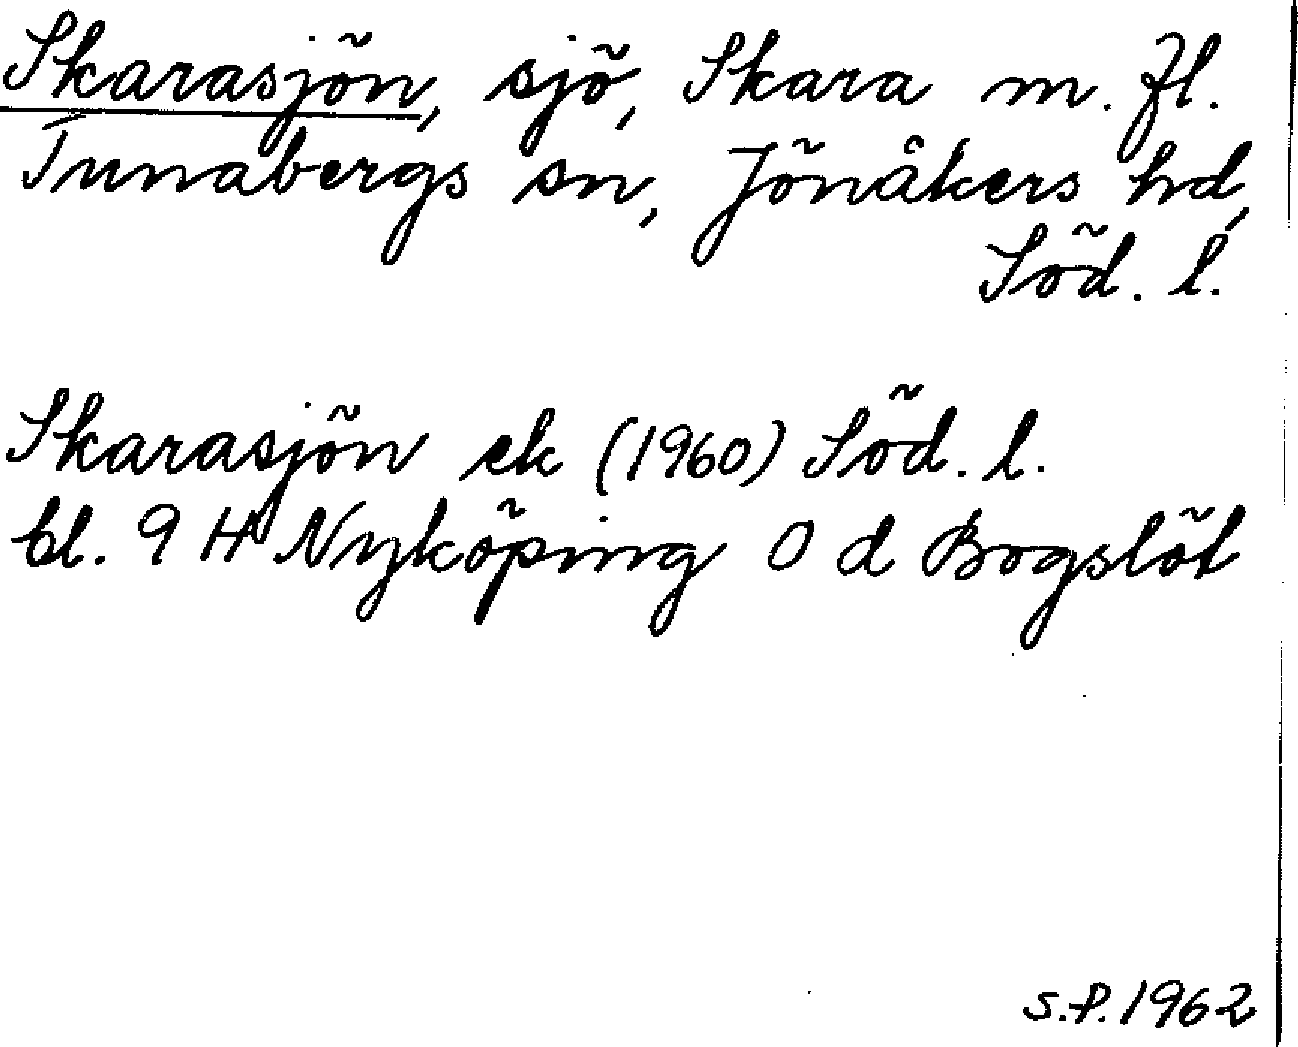 Skarasjön, sjö, Skara m. fl.
Tunabergs sn, Jönåkers hd,
Söd. l.
Skarasjön ek (1960) Söd. l.
bl. 9 H Nyköping O d Bogslöt
S.P. 1962